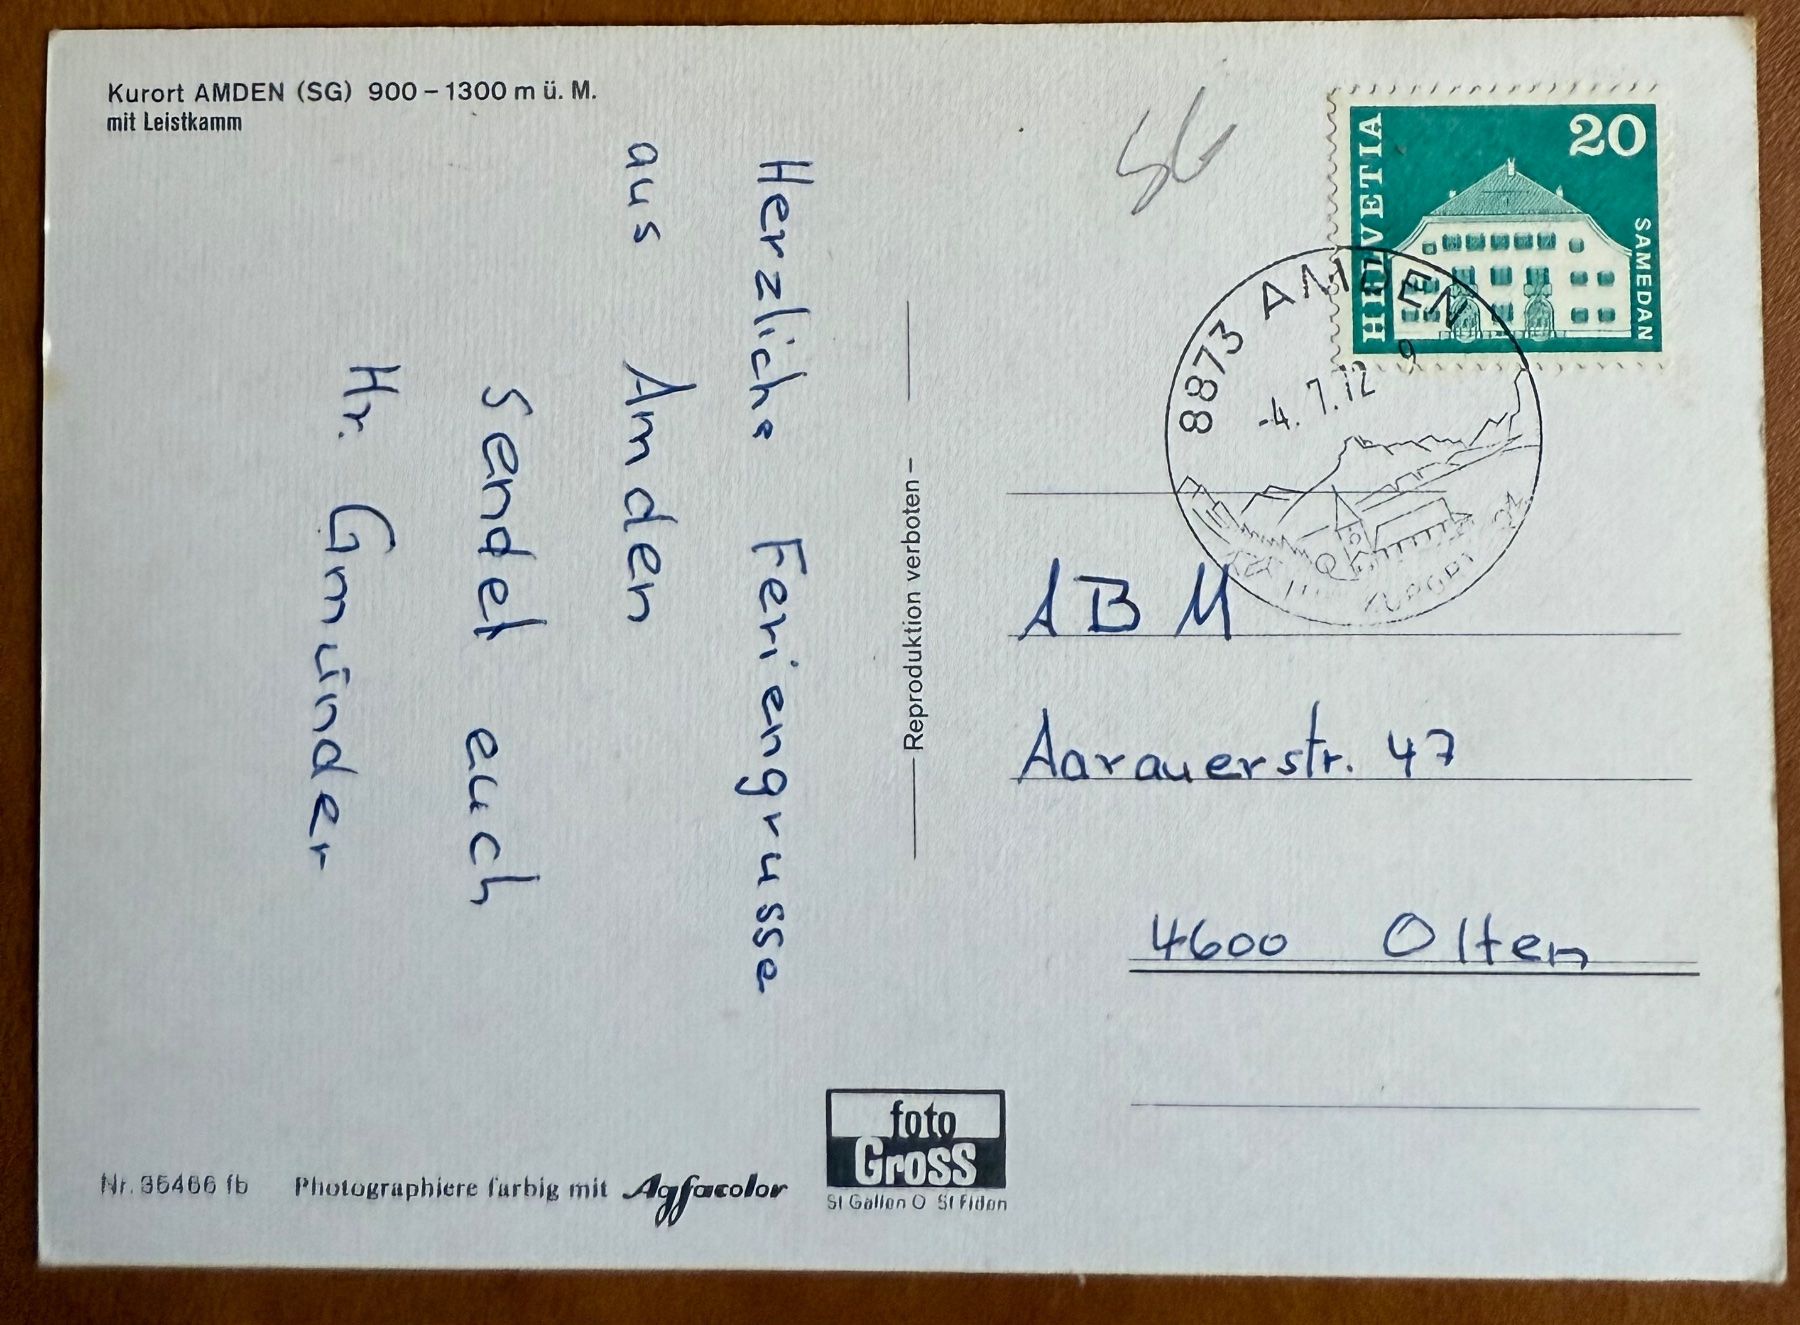 Kurort AMDEN (SG) 900 – 1300 m ü. M.
mit Leistkamm
Herzliche Feriengrusse
aus Amden
Sendet euch
Hr. Gmünder
Reproduktion verboten
SG
HELVETIA
20
SAMEDAN
8873 AMDEN
-4. 7. 72 9
KURORT
ABM
Aarauerstr. 47
4600 Olten
foto
Gross
St Gallen O St Fiden
Nr. 36466 fb Photographiere farbig mit Agfacolor